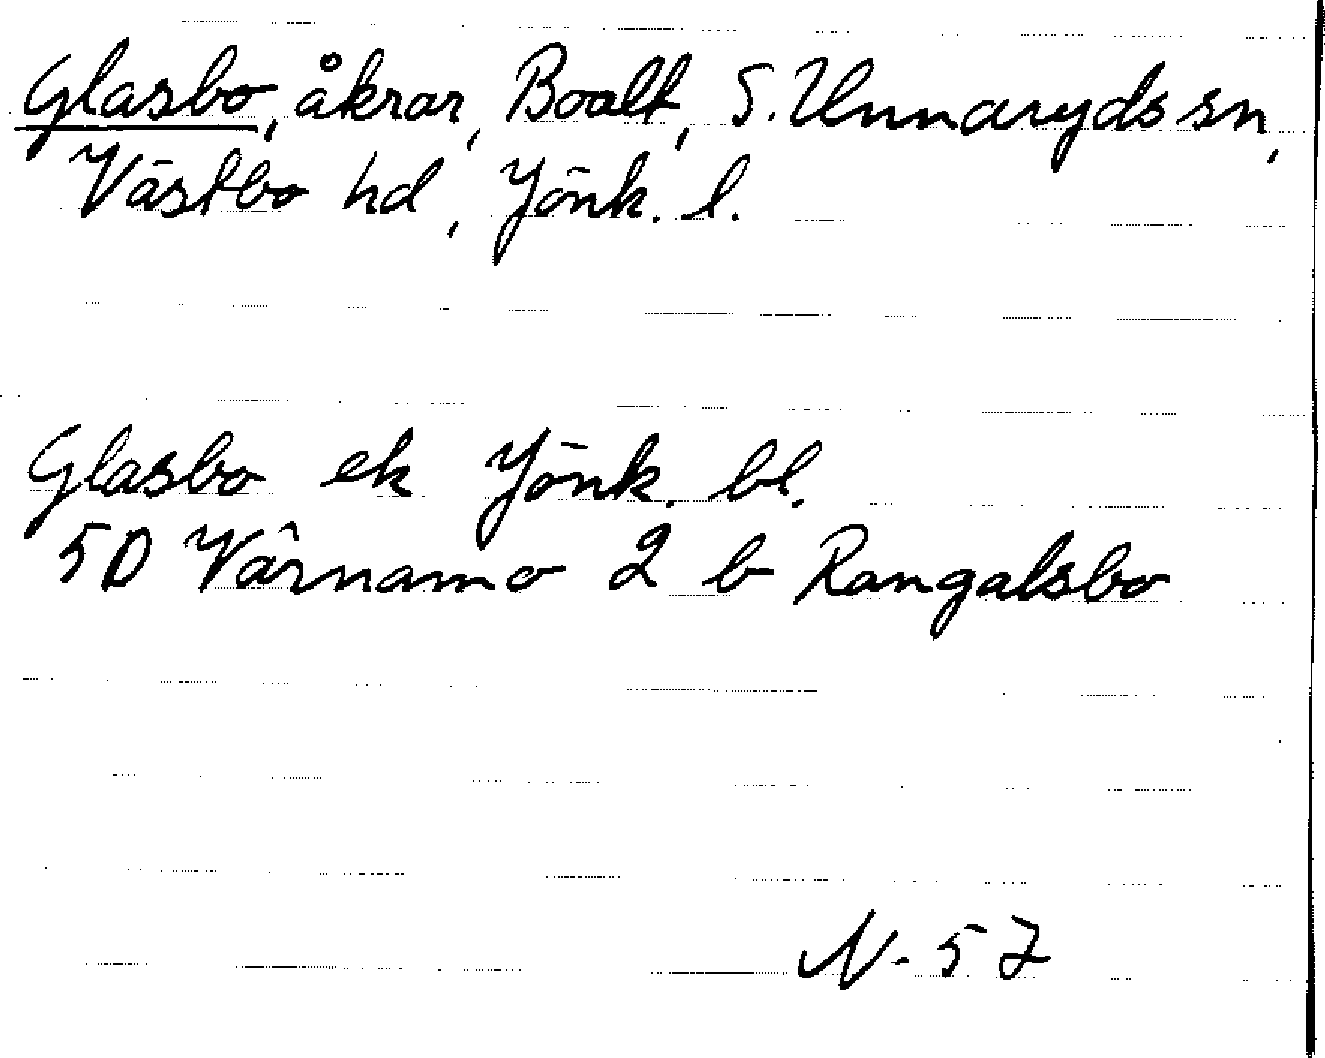 Glasbo, åkrar, Boalt, S. Unnaryds sn,
Västbo hd, Jönk. l.
Glasbo ek Jönk. bl.
5D Värnamo 2 b Rangalsbo
N. 57